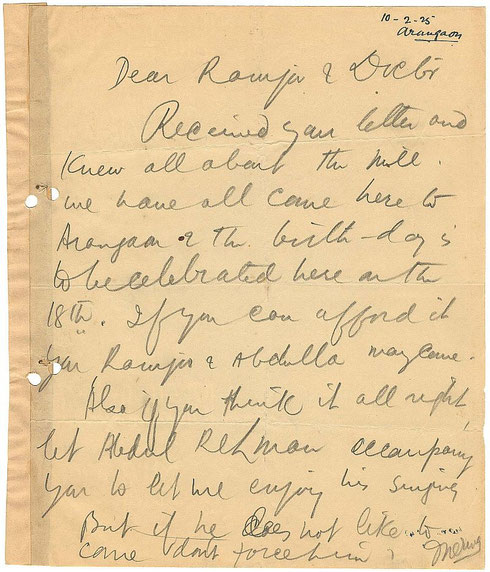 10-2-25
Arangaon
Dear Ramjoo & Doctor
Received your letter and
knew all about the mill.
We have all come here to
Arangaon & the birth-day is
to be celebrated here on the
18th. If you can afford it
you Ramjoo & Abdulla may come.
Also if you think it all right,
let Abdul Rehman accompany
you to let me enjoy his singing
But if he does not like to
come don't force him.